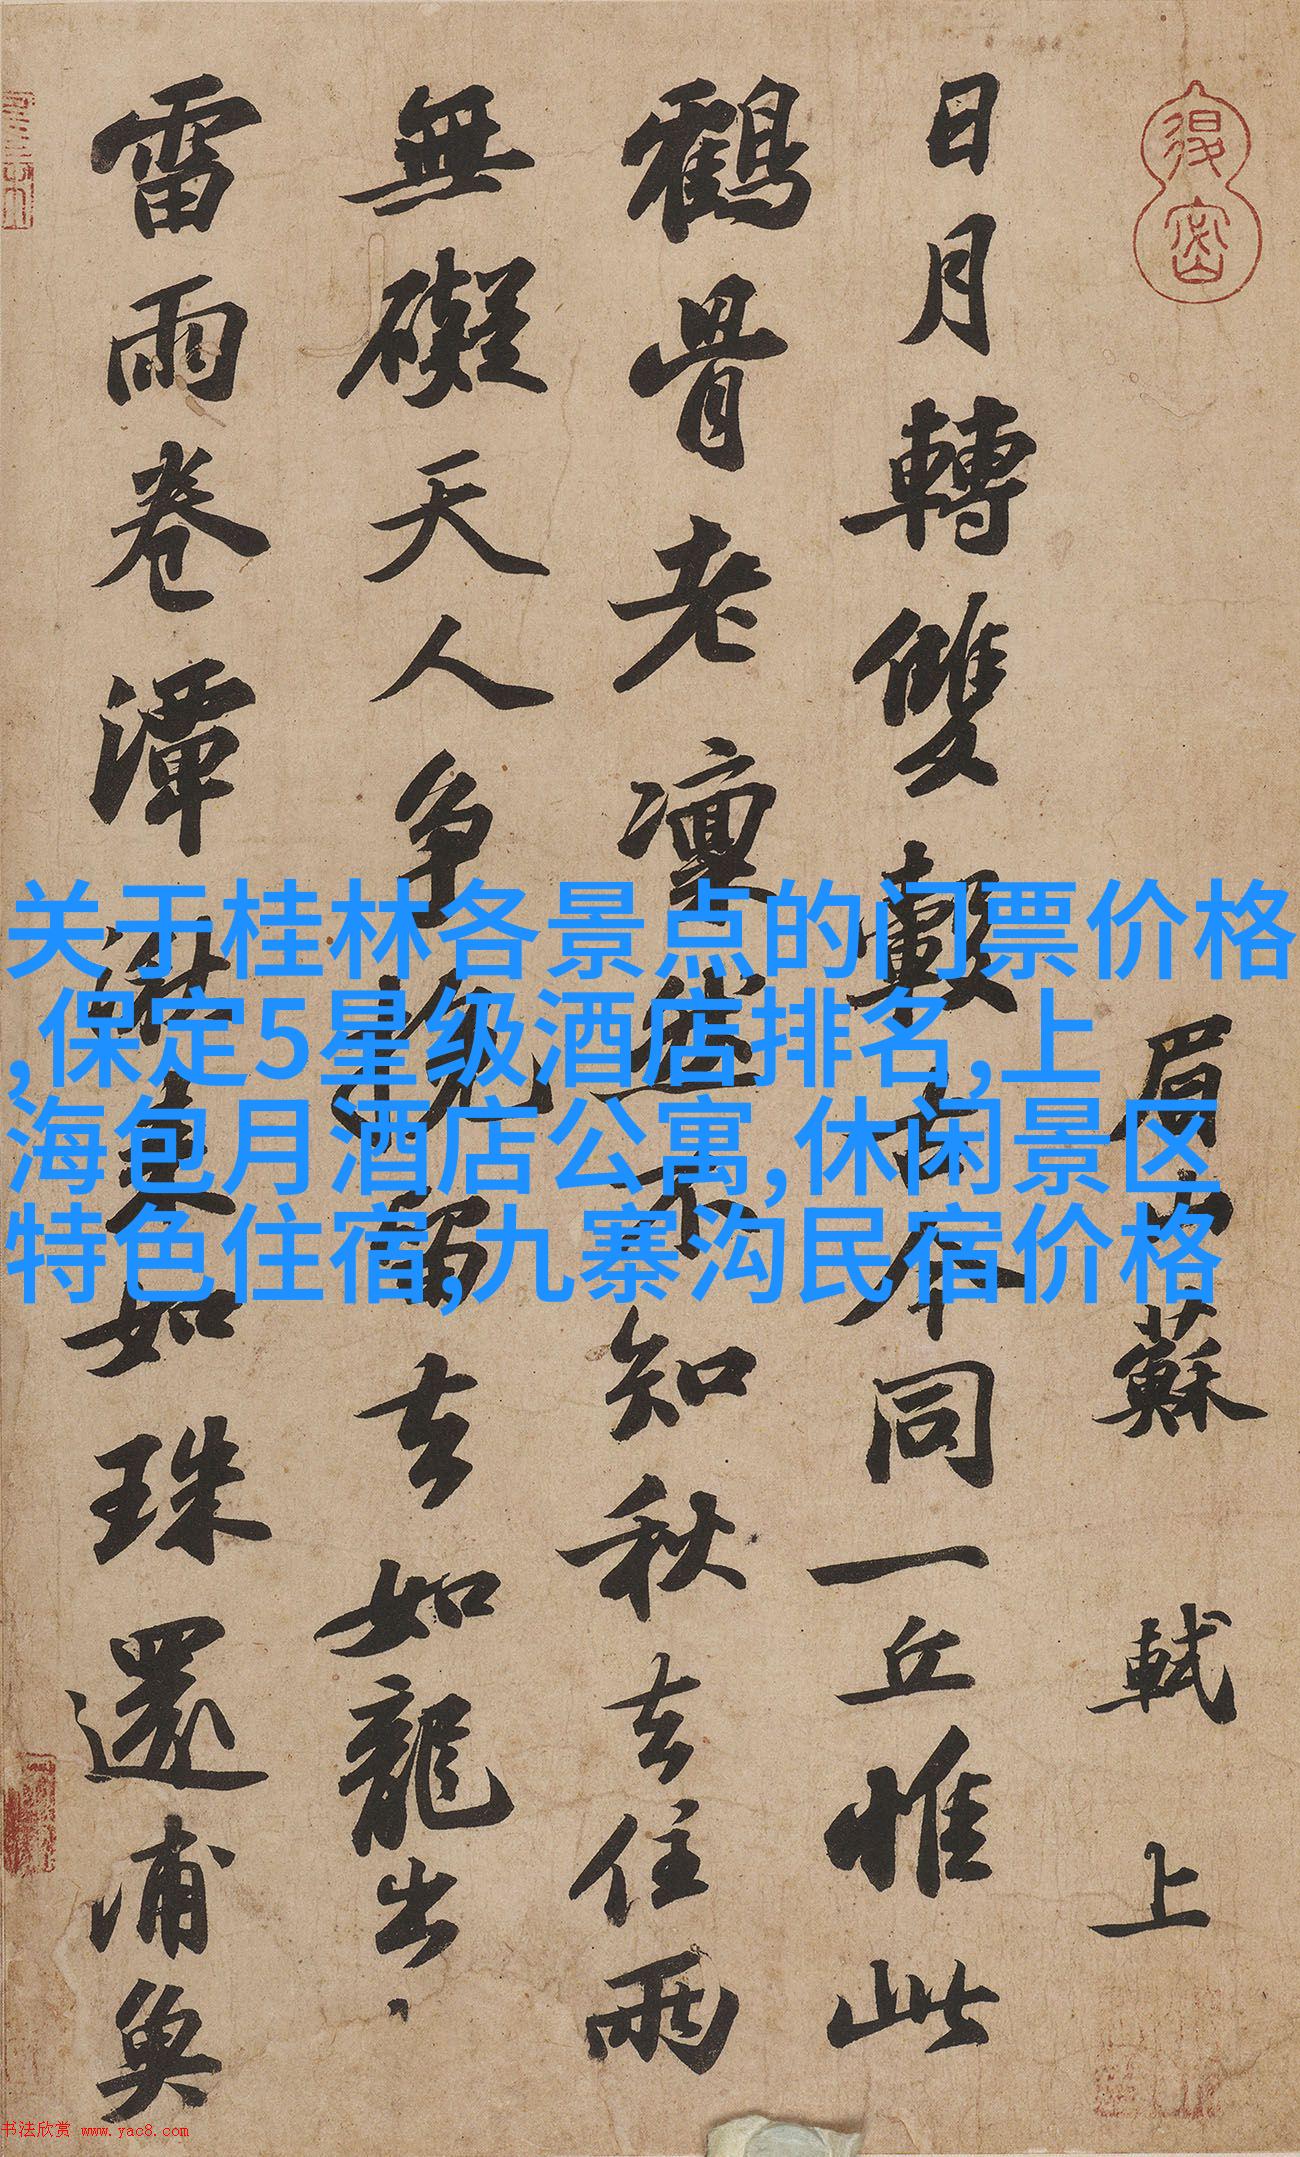 眉山蘇軾上
日月轉雙轂古今同一丘惟此
鶴骨老凜然不知秋去住兩
無礙天人争挽留去如龍出
雷雨卷潭湫来如珠還浦魚
关于桂林各景点的门票价格
,保定5星级酒店排名,上
海包月酒店公寓,休闲景区
特色住宿,九寨沟民宿价格
书法欣赏 www.yac8.com